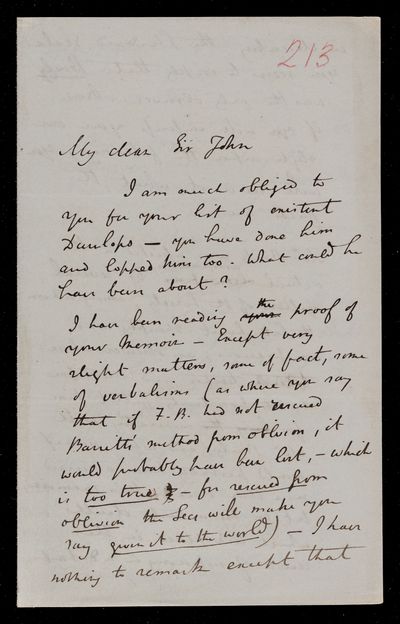 213
My dear Sir John
I am much obliged to
you for your list of existent
Dunlops — you have done him
and lopped him too. What could he
have been about?
I have been reading the proof of
your Memoir — Except very
slight matters, some of fact, some
of verbalisms (as where you say
that if F. B. had not rescued
Barrett's method from oblivion, it
would probably have been lost, — which
is too true — for rescued from
oblivion the Secs will make you
say given it to the world) — I have
nothing to remark except that